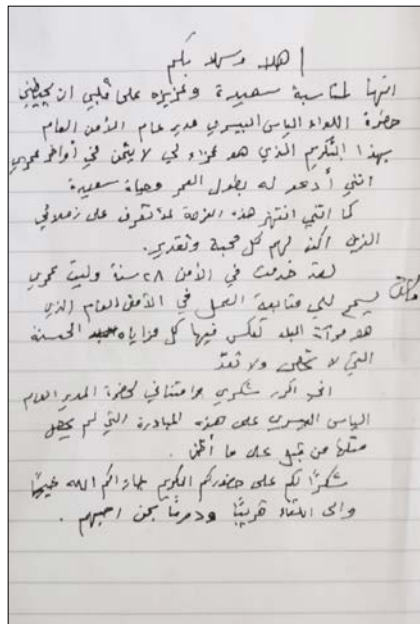 اهلا وسهلا بكم
انها لمناسبة سعيدة وعزيزه على قلبي ان يحيطني
حضرة اللواء الياس البيسري مدير عام الأمن العام
بهذا التكريم الذي هو عزاء لي لا يثمن في أواخر عمري
انني أدعو له بطول العمر وحياة سعيدة
كما انني انتهز هذه الفرصة لأتعرف على زملائي
الذين اكن لهم كل محبة وتقدير.
لقد خدمت في الأمن ٢٨ سنة وليت عمري
يسمح لي متابعة العمل في الأمن العام الذي
هو مرآة البلد تعكس فيها كل مزاياه الحسنه
التي لا تحصى ولا تعد
اكرر شكري وامتناني لحضرة المدير العام
الياس البيسري على هذه المبادرة التي لم يحصل
مثلها من قبل على ما أظن.
شكرًا لكم على حضوركم الكريم جازاكم الله خيرًا
والى اللقاء قريبًا ودمتم لمن احبهم.